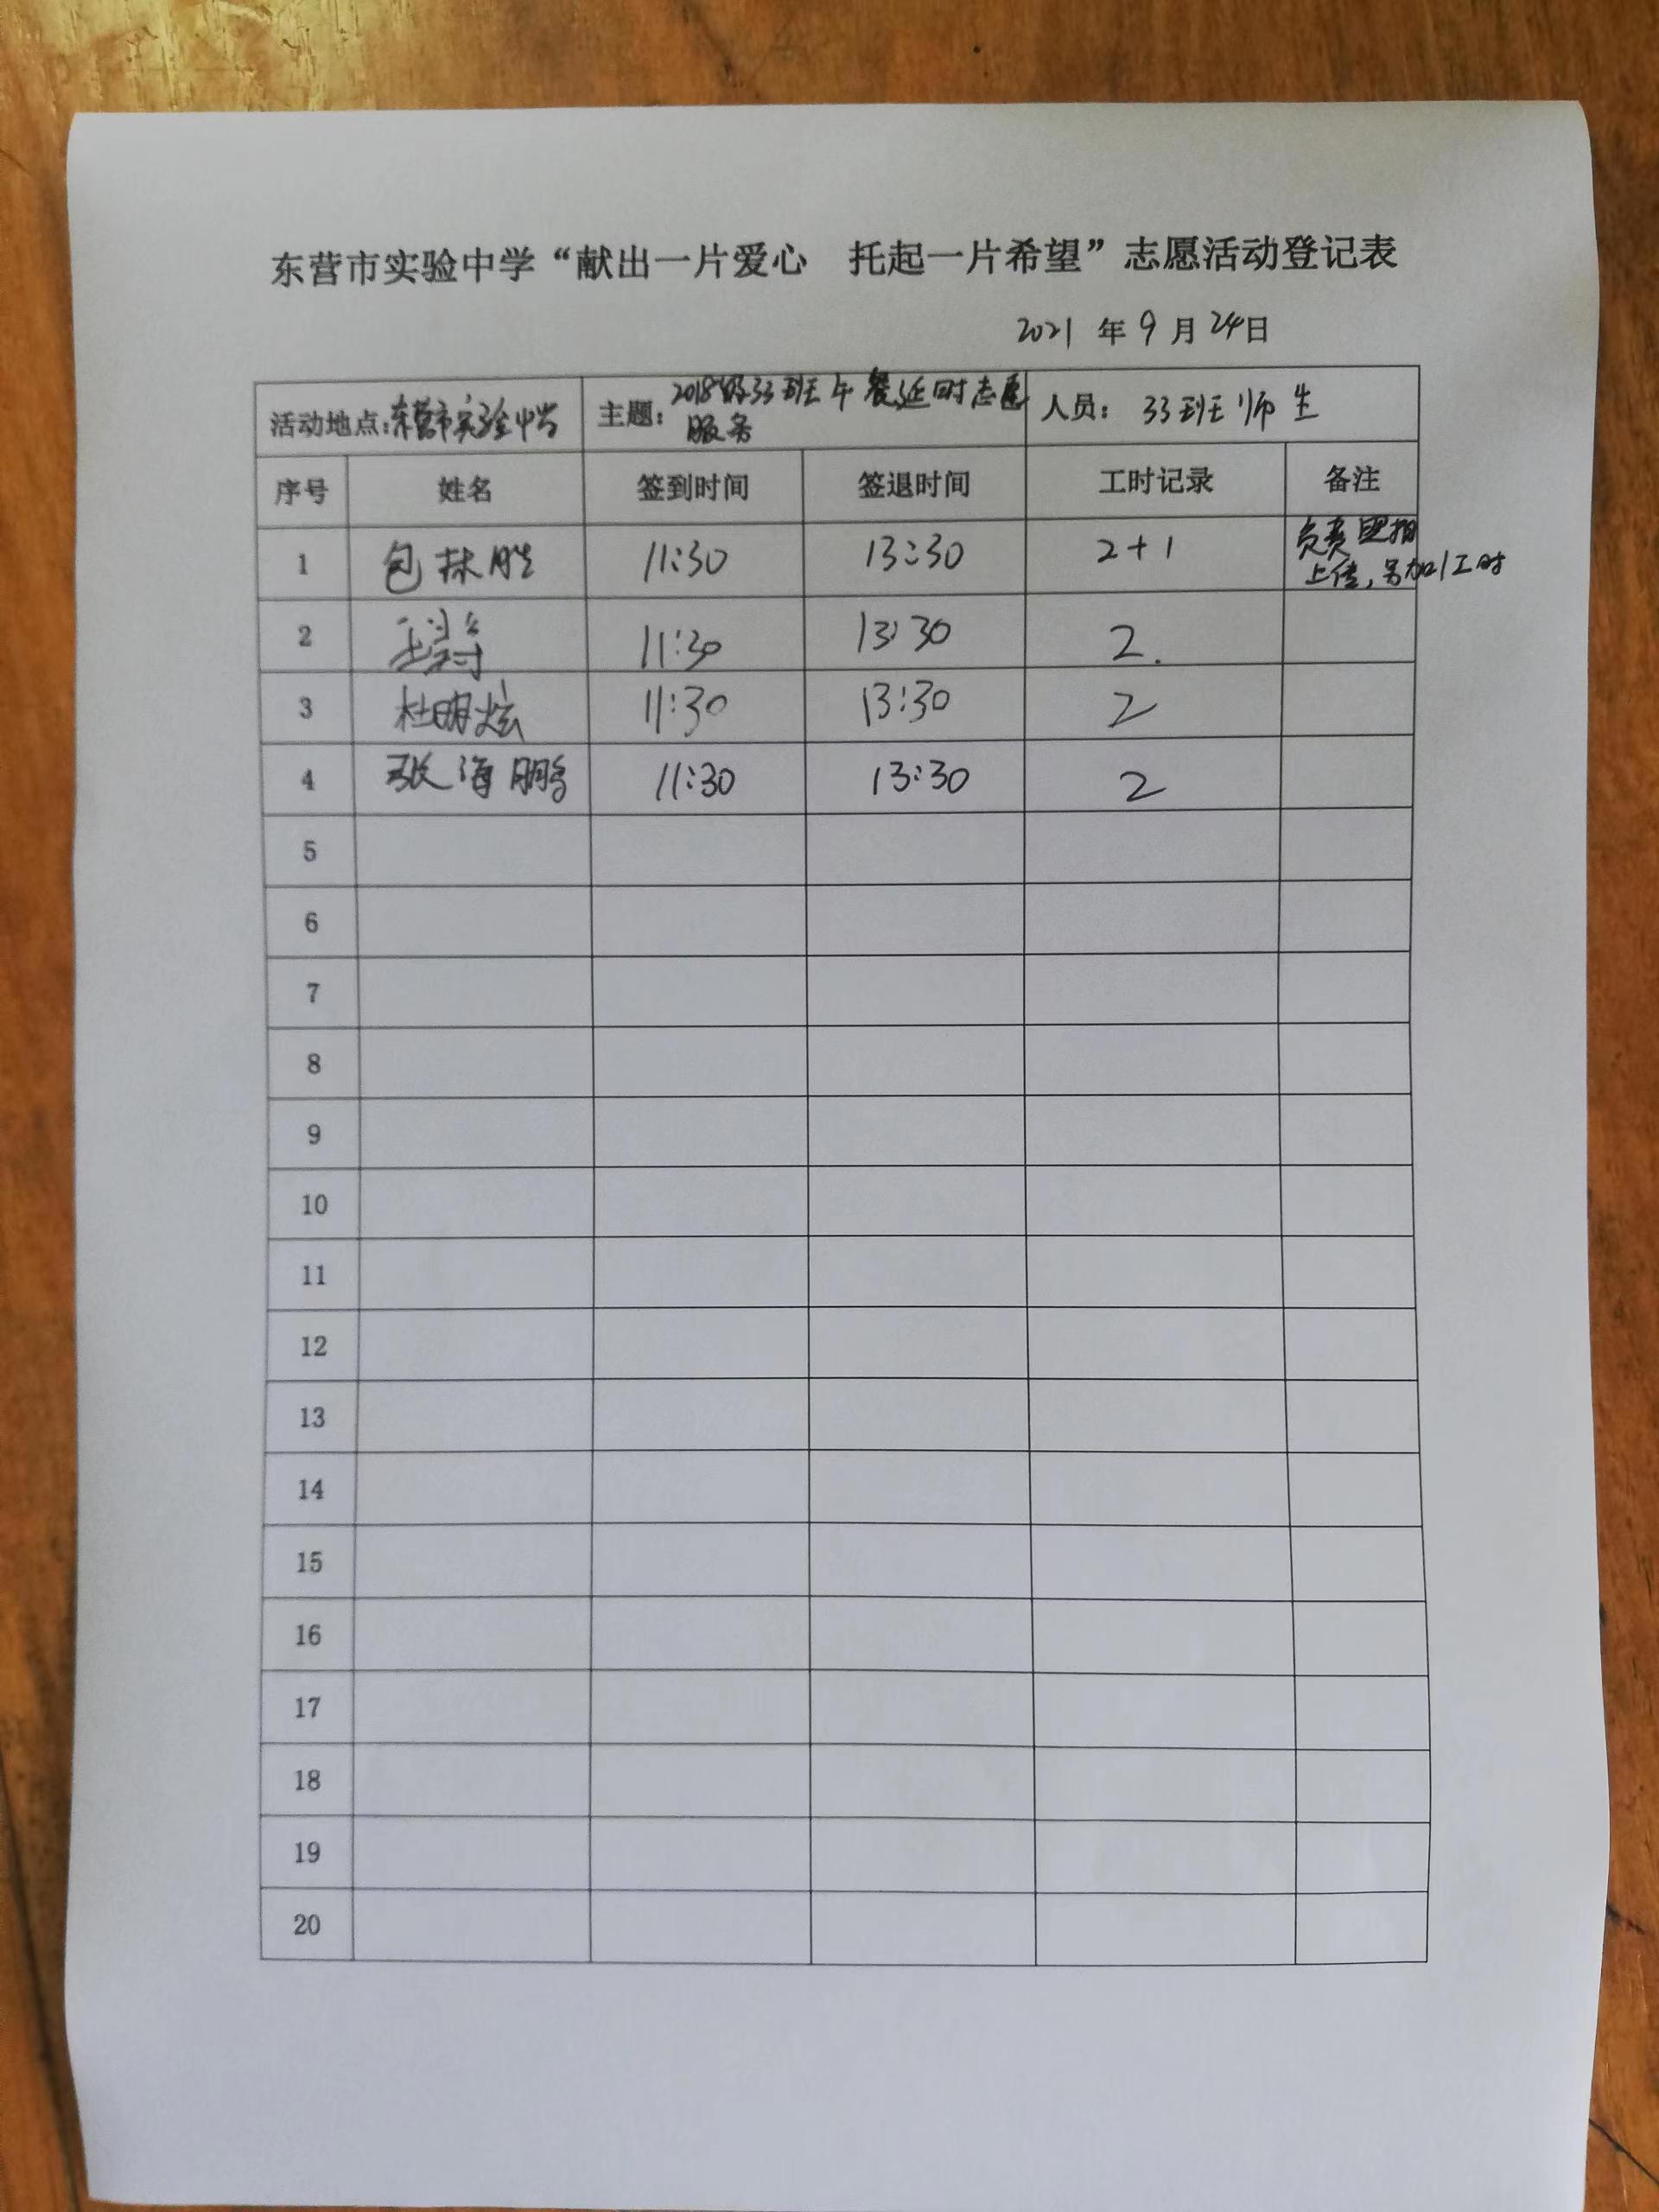 东营市实验中学“献出一片爱心 托起一片希望”志愿活动登记表
2021 年 9 月 24日
活动地点:东营市实验中学 主题:2018级33班午餐延时志愿 人员: 33班师生
服务
序号 姓名 签到时间 签退时间 工时记录 备注
1 包林胜 11:30 13:30 2+1 负责照相
上传,另加1工时
2 11:30 13:30 2.
3 杜明炫 11:30 13:30 2
4 张海鹏 11:30 13:30 2
5
6
7
8
9
10
11
12
13
14
15
16
17
18
19
20